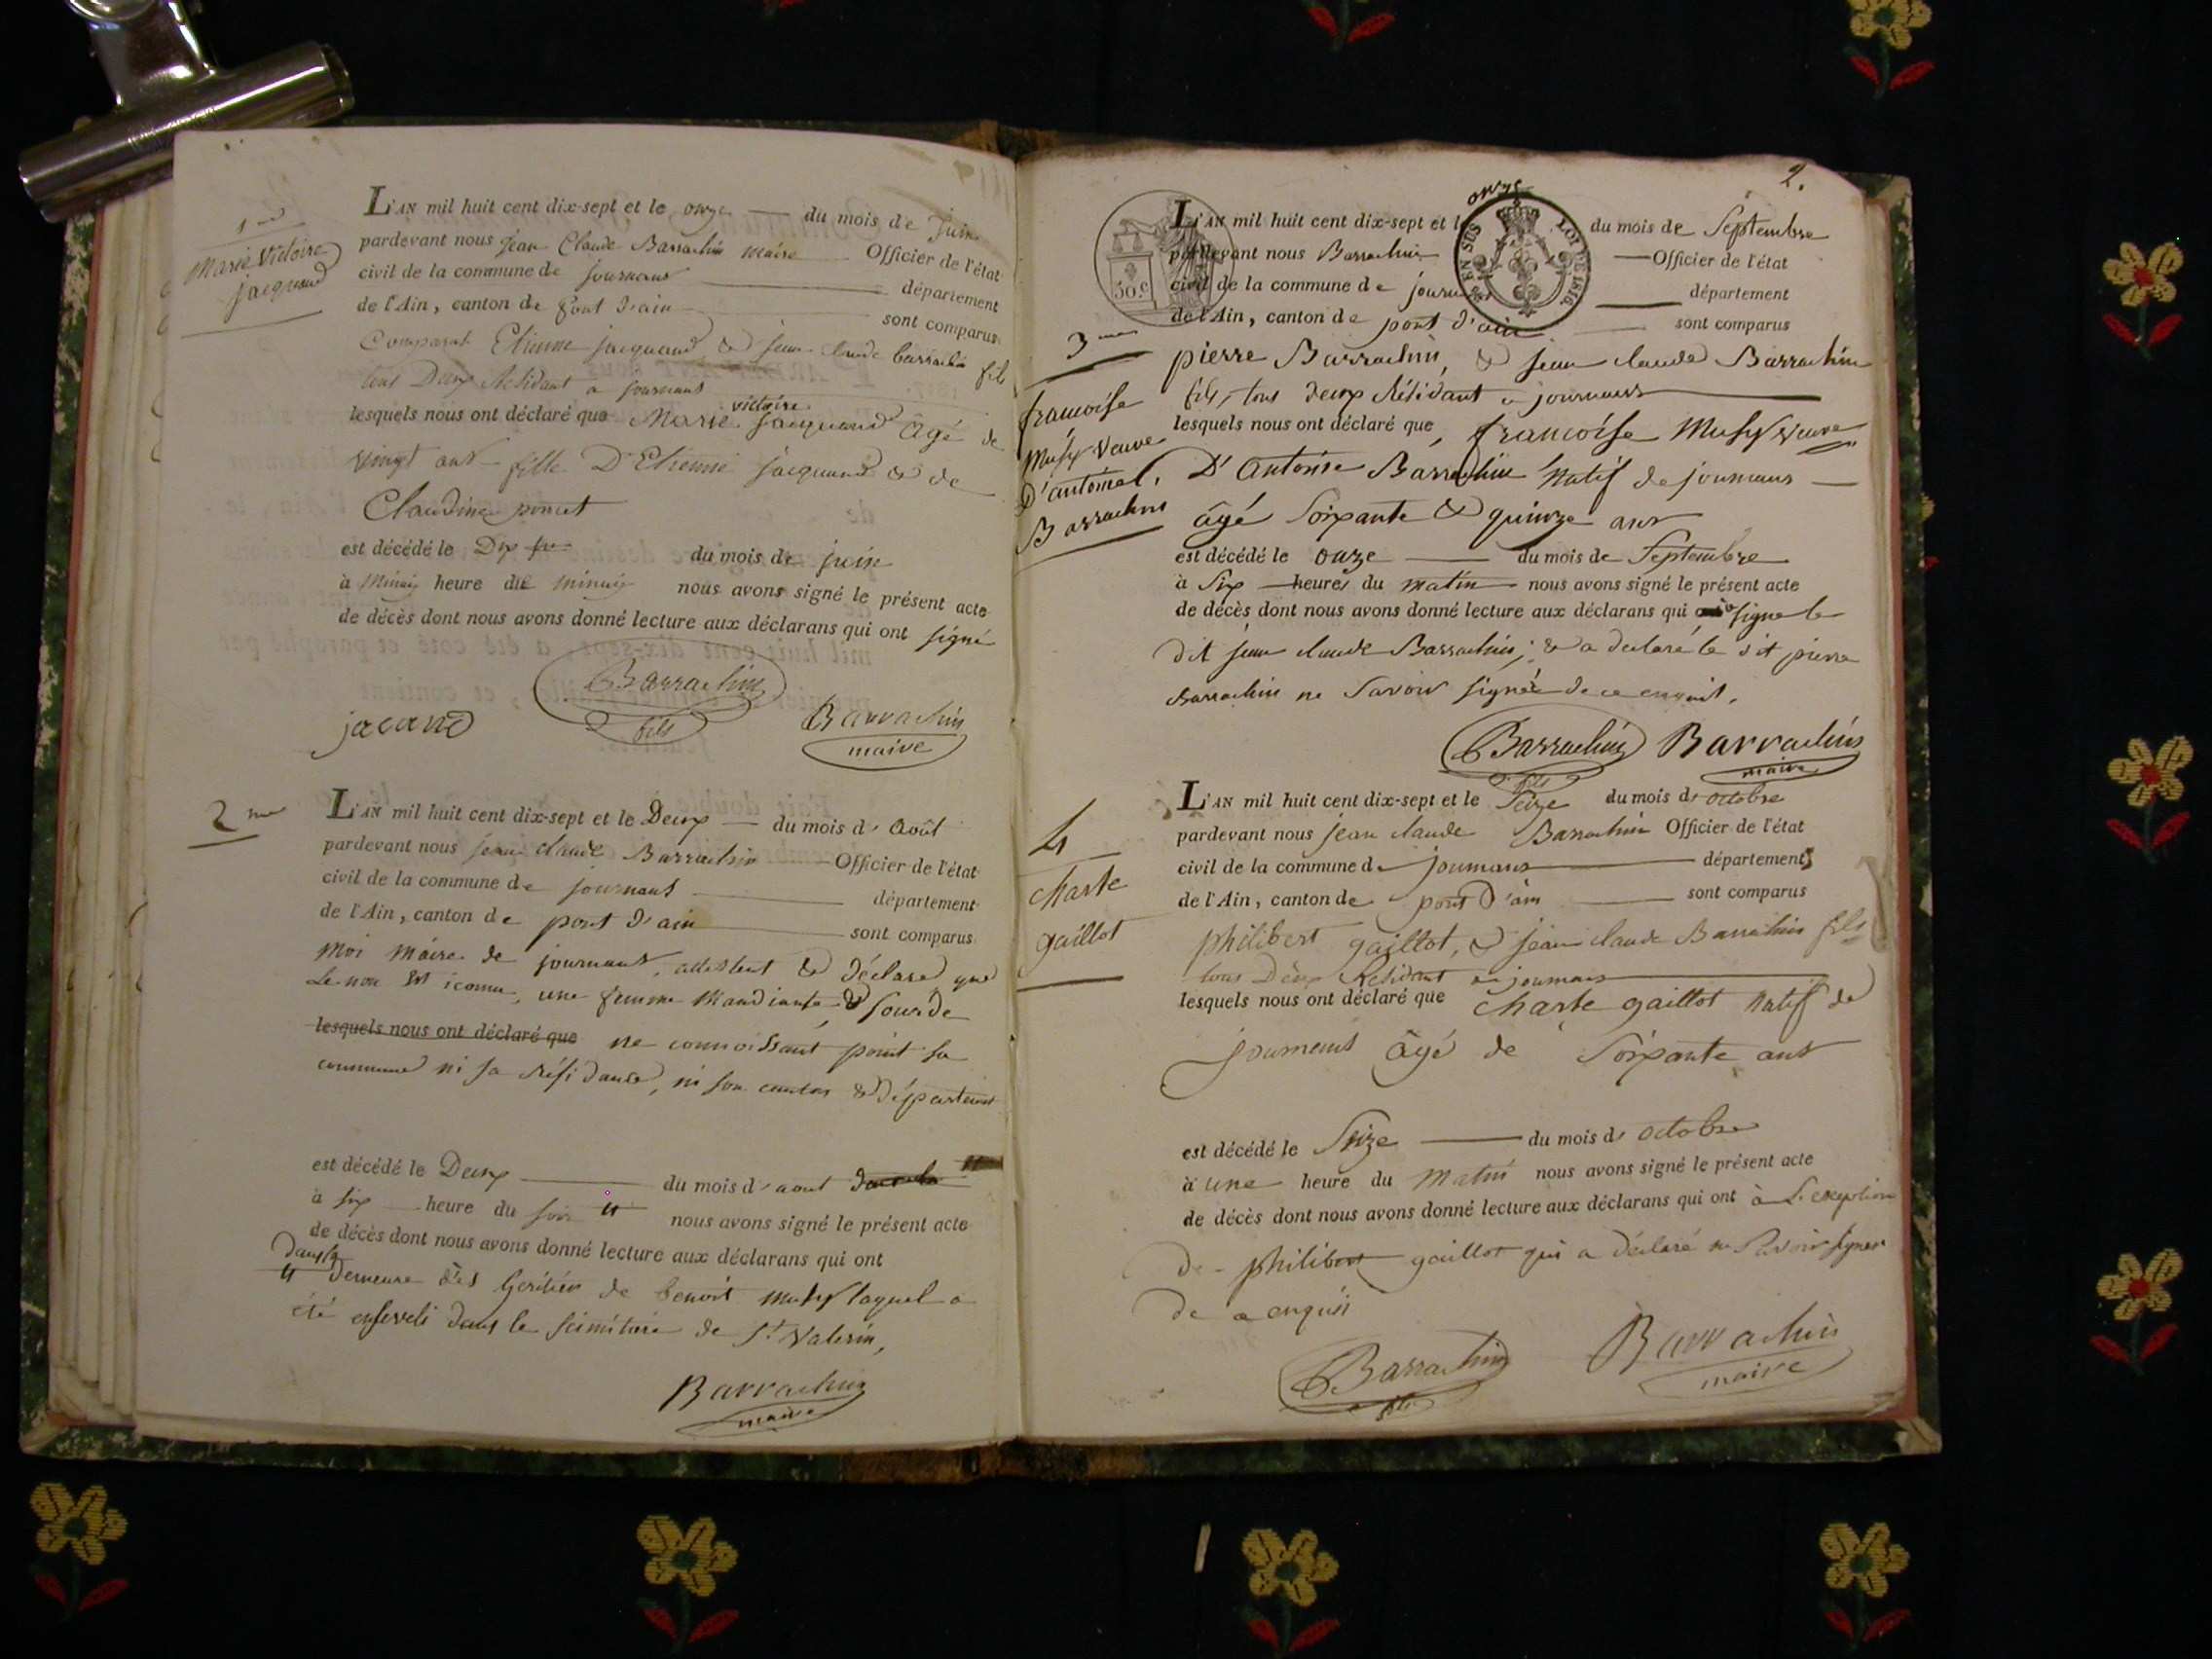 1re
Marie Victoire
jacquand
L'AN mil huit cent dix-sept et le onze du mois de Juin
pardevant nous Jean Claude Barrachin maire Officier de l'état
civil de la commune de journans département
de l'Ain, canton de pont d'ain sont comparus
Comparat Etienne jacquand & jean claude barrachin fils
tous Deux Résidant a journans
lesquels nous ont déclaré que Marie victoire jacquand âgé de
vingt ans fille D'Etienne jacquand & de
Claudine poncet
est décédé le Dix du mois de juin
à minuit heure du minuit nous avons signé le présent acte
de décès dont nous avons donné lecture aux déclarans qui ont signé
jacand
Barrachin
fils
Barrachin
maire
2me
L'AN mil huit cent dix-sept et le Deux du mois d'Août
pardevant nous jean claude Barrachin Officier de l'état
civil de la commune de journans département
de l'Ain, canton de pont d'ain sont comparus
Moi Maire de journans, attestent & Déclare que
Le non est iconnu, une femme Mandiante & Sourde
lesquels nous ont déclaré que ne connoissant point sa
commune ni sa Résidance, ni son canton & Département
est décédé le Deux du mois d'aout
à six heure du soir nous avons signé le présent acte
de décès dont nous avons donné lecture aux déclarans qui ont
Dans la
Demeure des heritiers de benoit Musy laquel a
été enseveli dans le simitiere de St Valerin,
Barrachin
maire
2.
50.c
EN SUS
LOI DE 1816.
onze
L'AN mil huit cent dix-sept et le du mois de Septembre
pardevant nous Barrachin Officier de l'état
civil de la commune de journans département
de l'Ain, canton de pont d'ain sont comparus
3me
francoise
Musy veuve
D'antoine
Barrachin
pierre Barrachin, & jean claude Barrachin
fils, tous deux Résidant a journans
lesquels nous ont déclaré que francoise Musy veuve
D'Antoine Barrachin Natif de journans
âgé Soixante & quinze ans
est décédé le onze du mois de Septembre
à Six heures du matin nous avons signé le présent acte
de décès dont nous avons donné lecture aux déclarans qui signe le
dit jean claude Barrachin; & a declaré le dit pierre
Barrachin ne Savoir signée de ce enquit.
Barrachin
fils
Barrachin
maire
4
charle
gaillot
L'AN mil huit cent dix-sept et le Seize du mois d'octobre
pardevant nous jean claude Barrachin Officier de l'état
civil de la commune de journans département
de l'Ain, canton de pont D'ain sont comparus
philibert gaillot, & jean claude Barrachin fils
tous Deux Résidant a journans
lesquels nous ont déclaré que charle gaillot Natif de
journans âgé de Soixante ans
est décédé le Seize du mois d'octobre
à une heure du Matin nous avons signé le présent acte
de décès dont nous avons donné lecture aux déclarans qui ont à L'exeption
de philibert gaillot qui a Déclaré ne Savoir signer
De a enquis
Barrachin
fils
Barrachin
maire